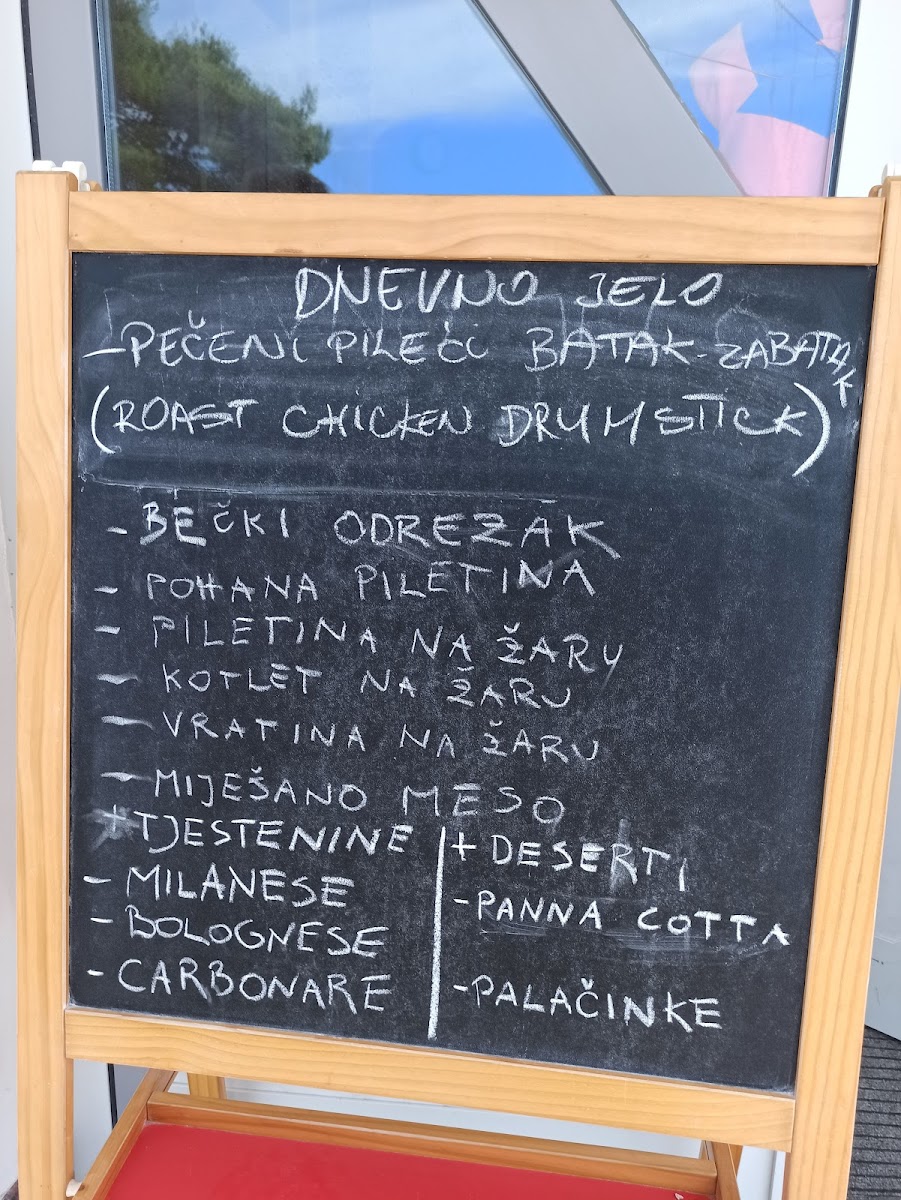 DNEVNO JELO
- PEČENI PILEĆI BATAK-ZABATAK
(ROAST CHICKEN DRUMSTICK)
- BEČKI ODREZAK
- POHANA PILETINA
- PILETINA NA ŽARU
- KOTLET NA ŽARU
- VRATINA NA ŽARU
- MIJEŠANO MESO
+ TJESTENINE
- MILANESE
- BOLOGNESE
- CARBONARE
+ DESERTI
- PANNA COTTA
- PALAČINKE